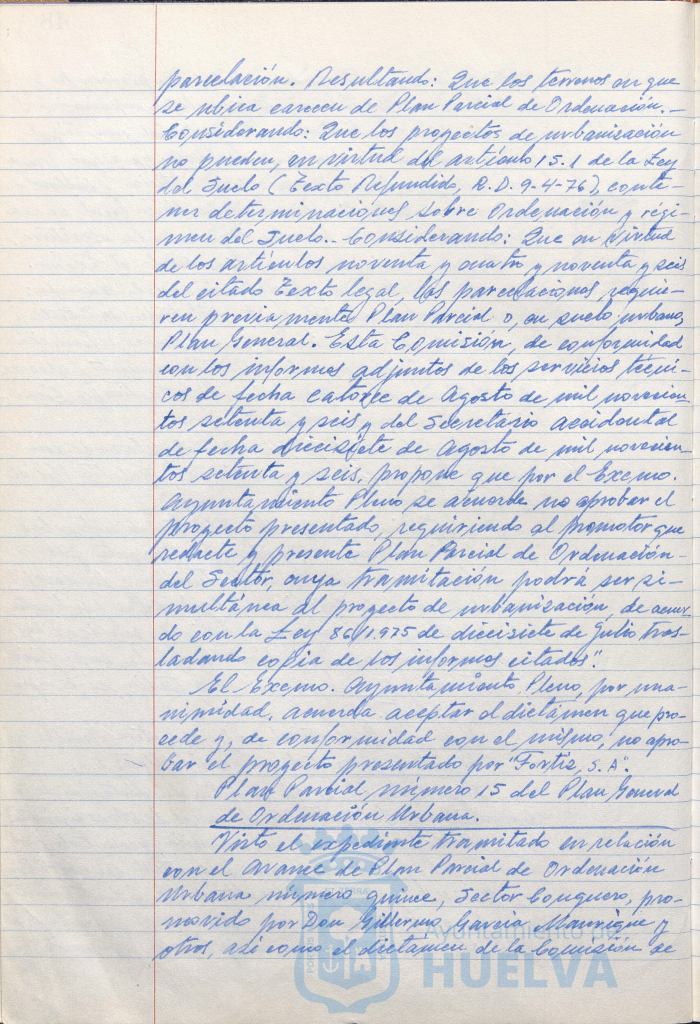 parcelación. Resultando: Que los terrenos en que
se ubica carecen de Plan Parcial de Ordenación.-
Considerando: Que los proyectos de urbanización
no pueden, en virtud del artículo 15.1 de la Ley
del Suelo (Texto Refundido, R.D. 9-4-76), conte-
ner determinaciones sobre Ordenación y régi-
men del Suelo.- Considerando: Que en virtud
de los artículos noventa y cuatro y noventa y seis
del citado Texto legal, las parcelaciones, requie-
ren previamente Plan Parcial o, en suelo urbano,
Plan General. Esta Comisión, de conformidad
con los informes adjuntos de los servicios técni-
cos de fecha catorce de Agosto de mil novecien-
tos setenta y seis y del Secretario accidental
de fecha diecisiete de Agosto de mil novecien-
tos setenta y seis, propone que por el Excmo.
Ayuntamiento Pleno se acuerde no aprobar el
proyecto presentado, requiriendo al promotor que
redacte y presente Plan Parcial de Ordenación
del Sector, cuya tramitación podrá ser si-
multánea al proyecto de urbanización, de acuer-
do con la Ley 86/1.975 de diecisiete de Julio tras-
ladando copia de los informes citados".
El Excmo. Ayuntamiento Pleno, por una-
nimidad, acuerda aceptar el dictámen que pre-
cede y, de conformidad con el mismo, no apro-
bar el proyecto presentado por "Fortiz, S.A".
Plan Parcial número 15 del Plan General
de Ordenación Urbana.
Visto el expediente tramitado en relación
con el Avance de Plan Parcial de Ordenación
Urbana número quince, Sector Conquero, pro-
movido por Don Gillermo García Manrique y
otros, así como el dictamen de la Comisión de
Ayuntamiento de
HUELVA